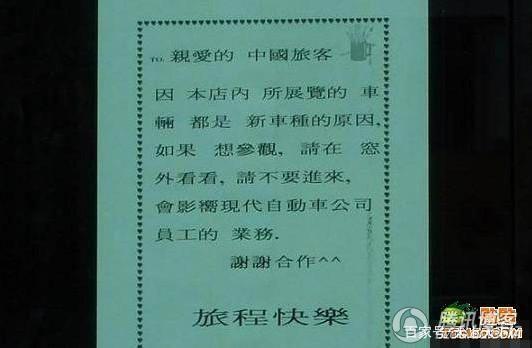 TO. 親愛的 中國旅客
因 本店內 所展覽的 車
輛 都是 新車種的原因,
如果 想參觀, 請在 窓
外看看, 請不要進來,
會影嚮現代自動車公司
員工的 業務.
謝謝合作^^
旅程快樂